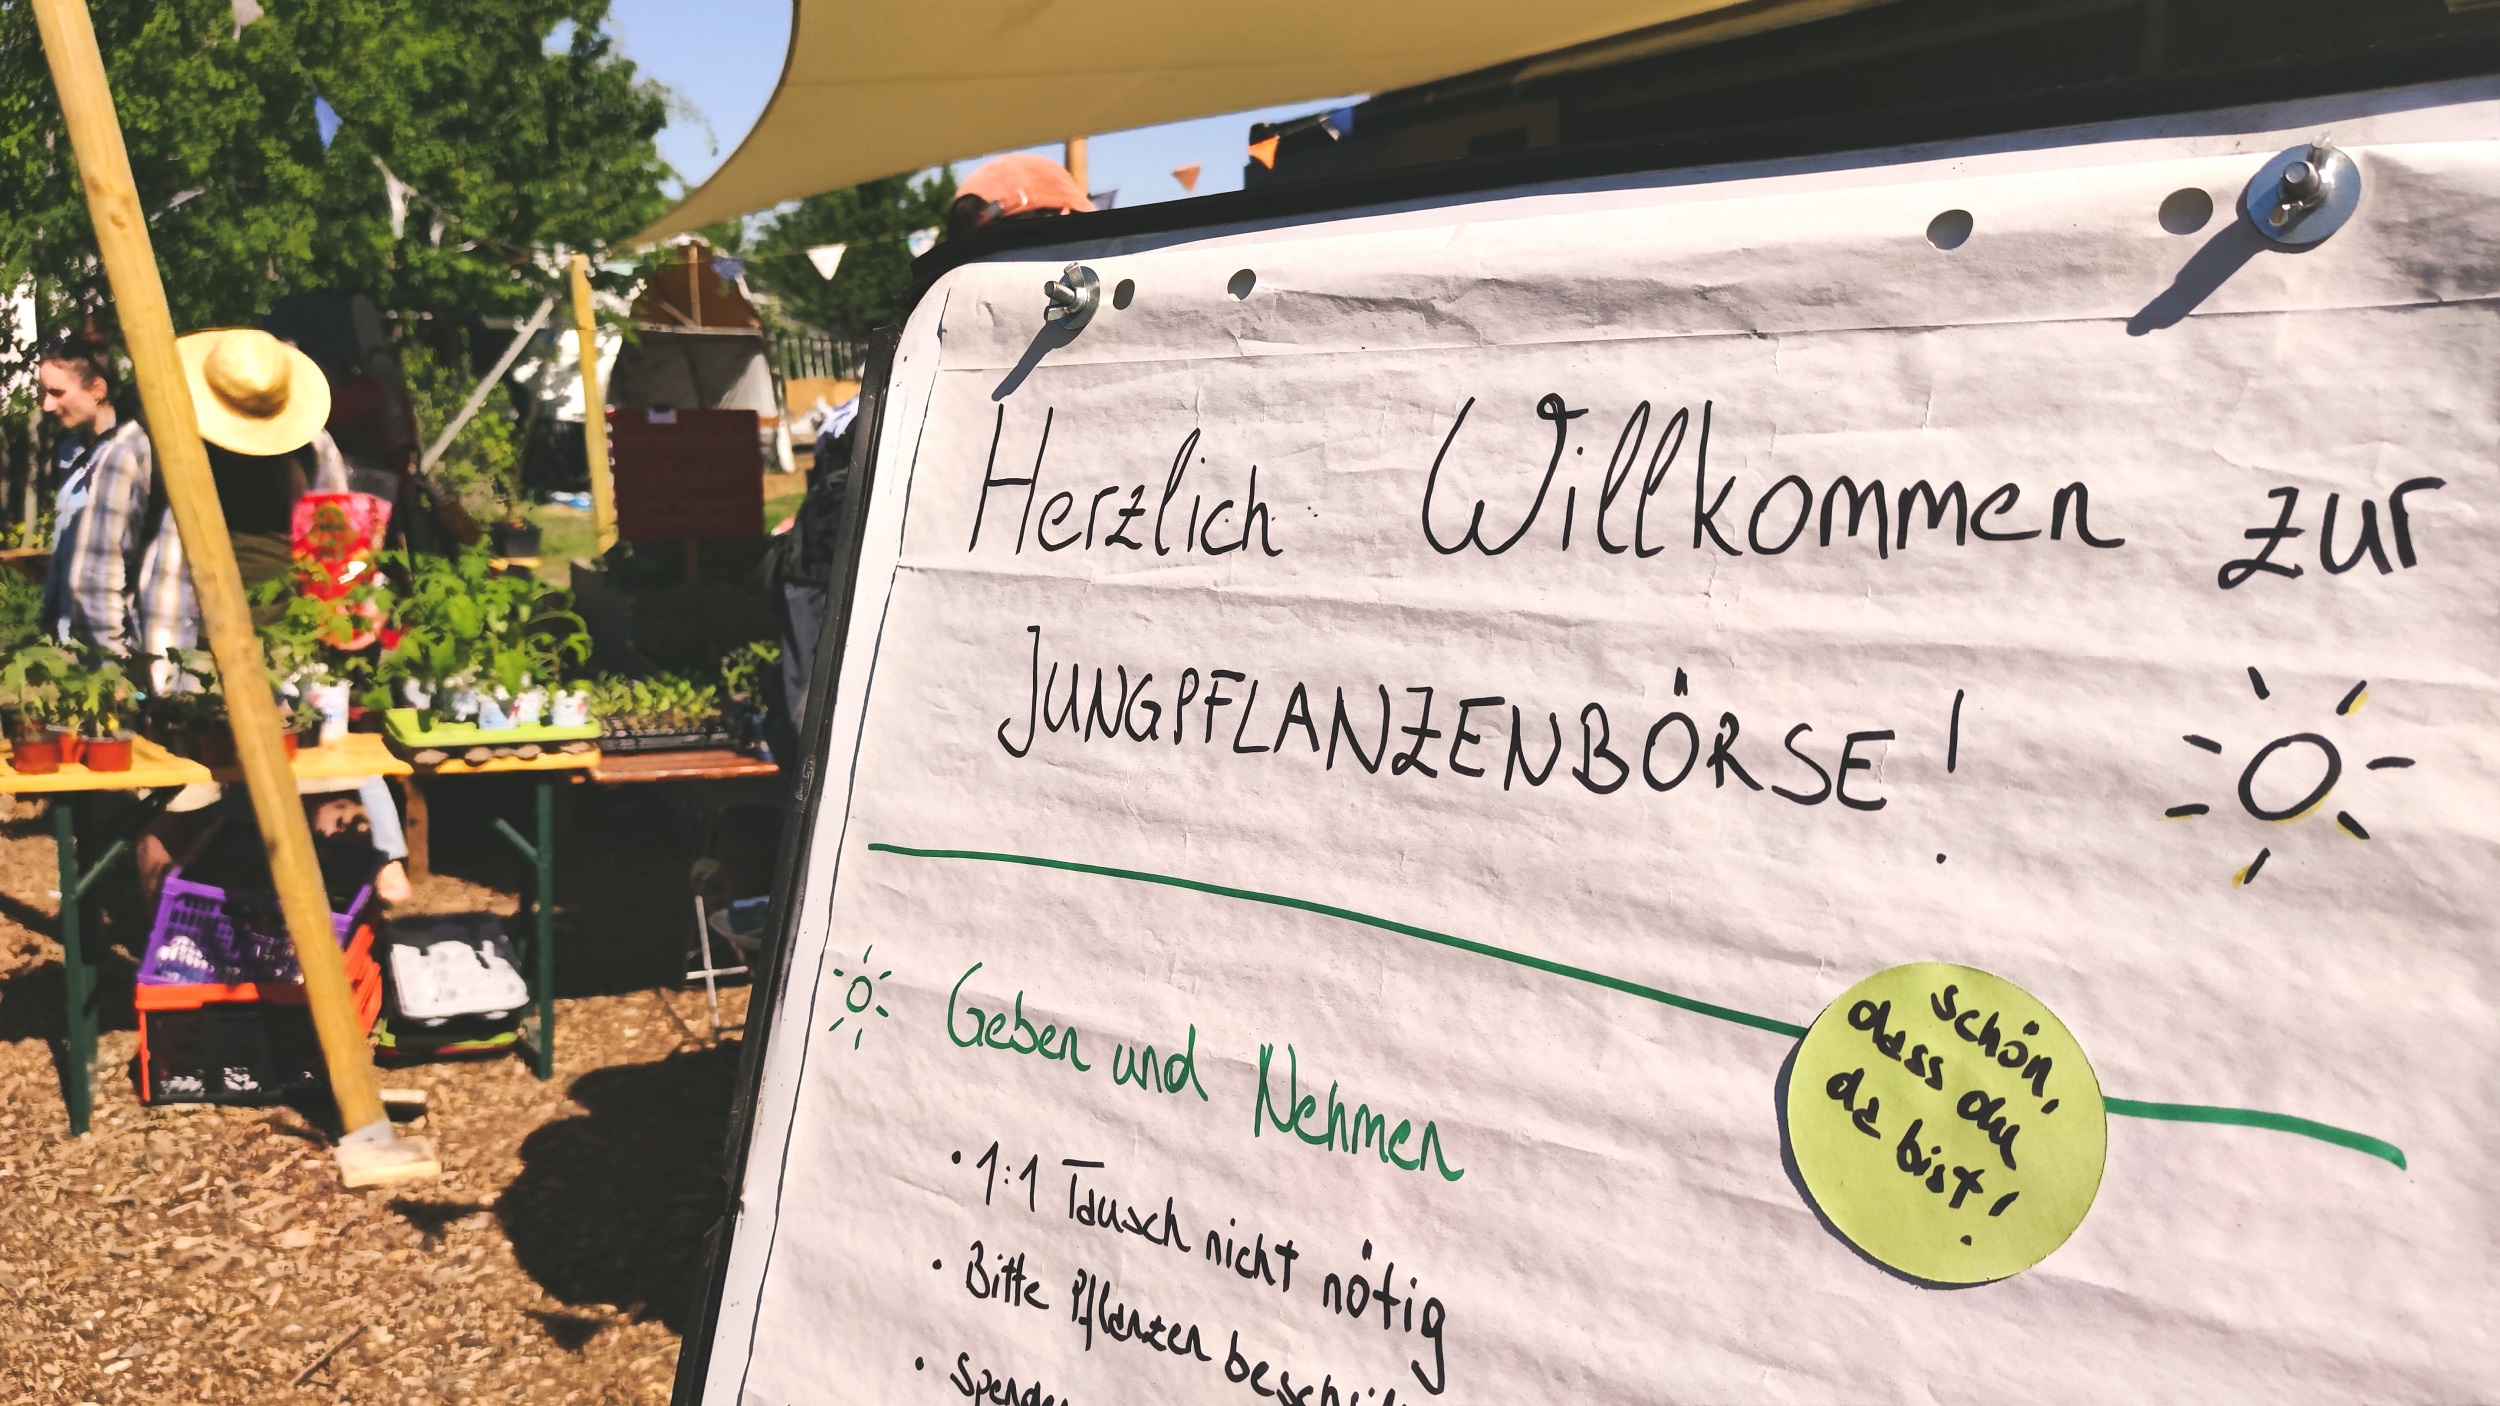 Herzlich Willkommen zur
JUNGPFLANZENBÖRSE!
schön,
dass du
da bist!
Geben und Nehmen
• 1:1 Tausch nicht nötig
• Bitte Pflanzen
•